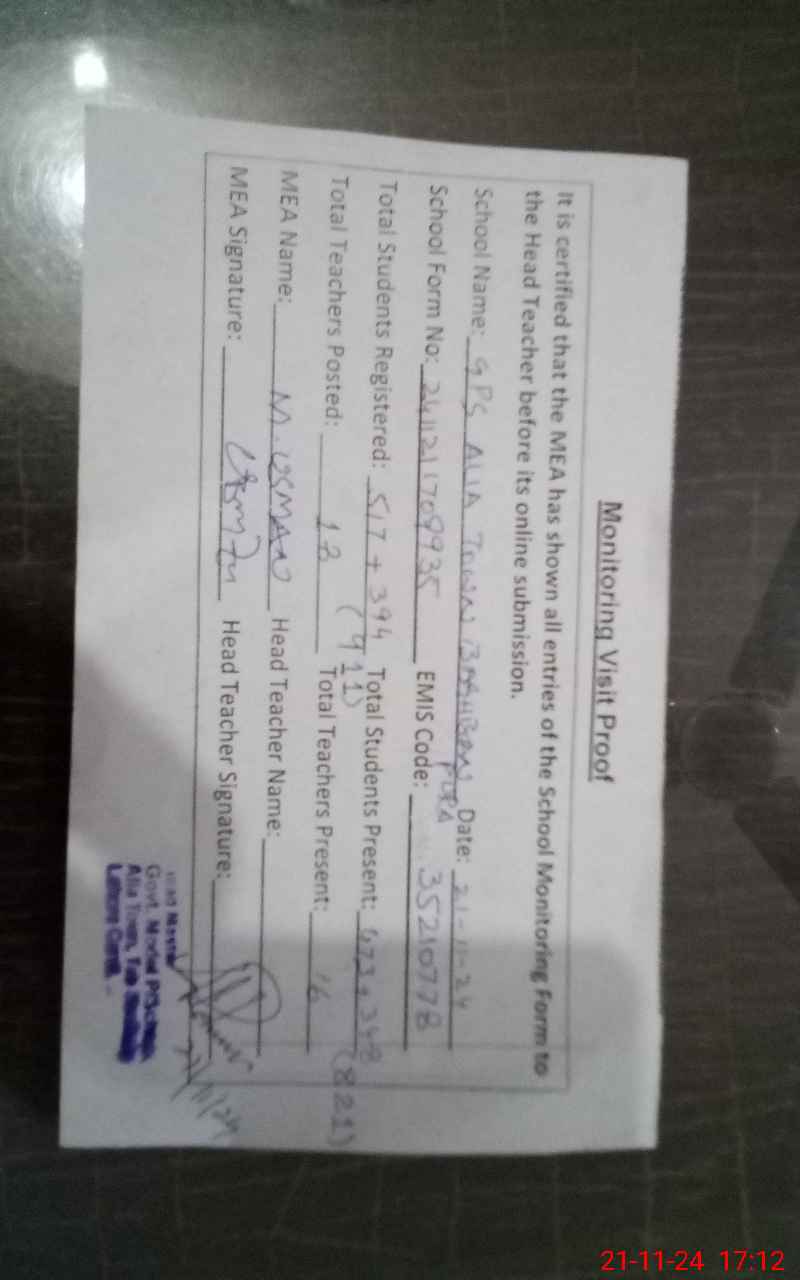 Monitoring Visit Proof
It is certified that the MEA has shown all entries of the School Monitoring Form to
the Head Teacher before its online submission.
School Name: GPS ALIA TOWN Date: 21-11-24
PURA
School Form No: EMIS Code: 35210778
Total Students Registered: 517 + 394 Total Students Present: 473 + 348
(911) (821)
Total Teachers Posted: 18 Total Teachers Present: 16
MEA Name: M. USMAN Head Teacher Name:
MEA Signature: Head Teacher Signature:
Head Master
Govt. Model P/School
Alia Town,
Lahore Cantt.
21-11-24 17:12